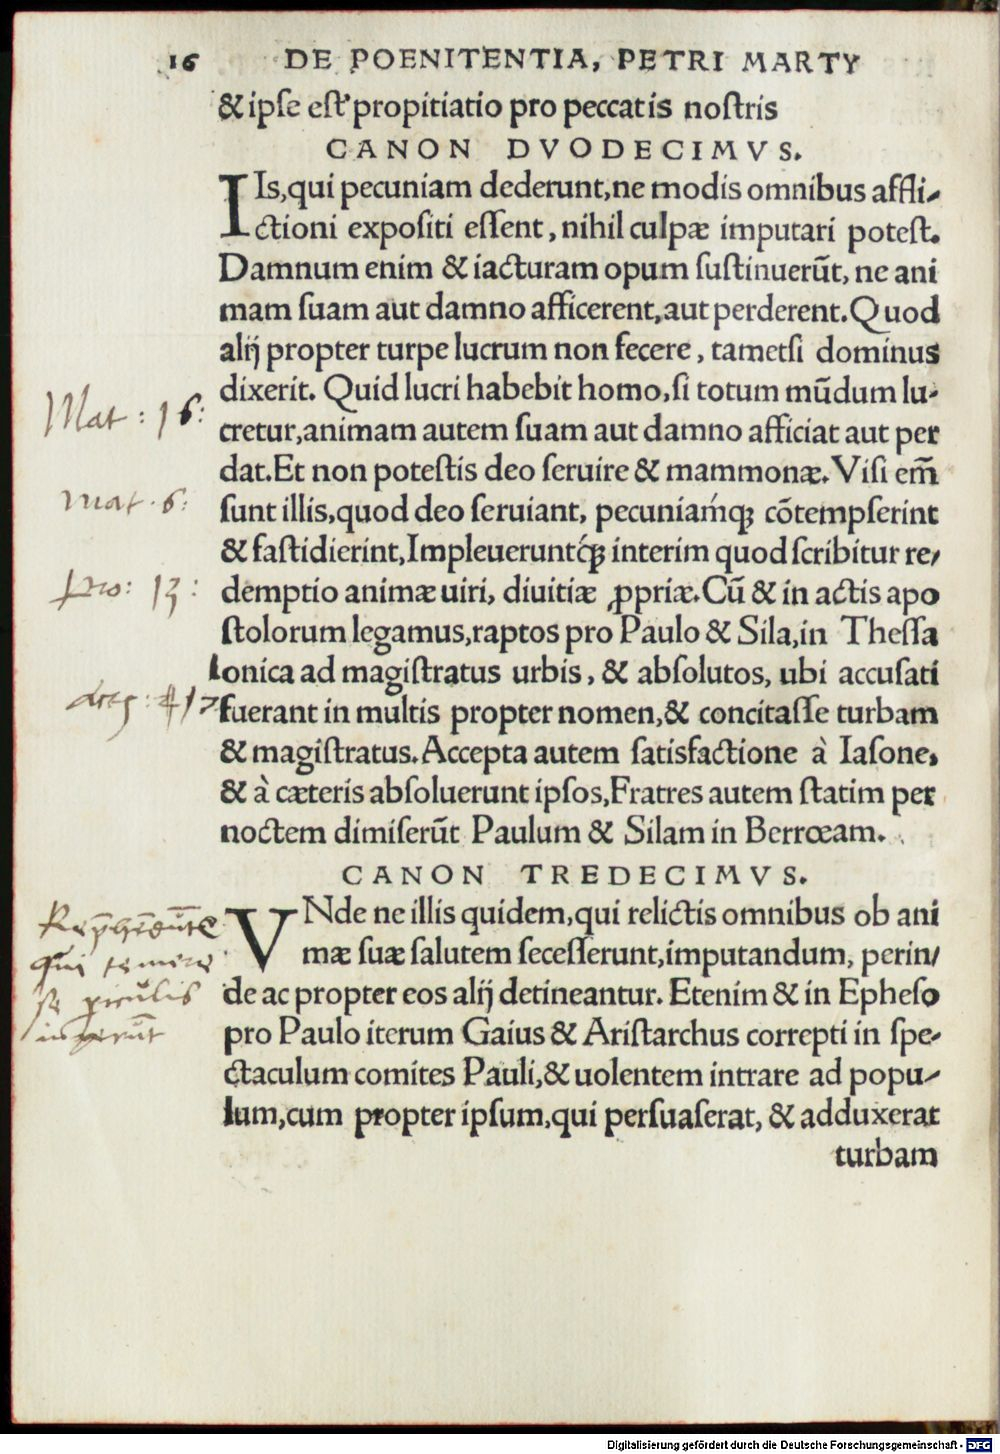 16 DE POENITENTIA, PETRI MARTY
& ipse est propitiatio pro peccatis nostris
CANON DVODECIMVS.
IIs, qui pecuniam dederunt, ne modis omnibus affli-
ctioni expositi essent, nihil culpæ imputari potest.
Damnum enim & iacturam opum sustinuerūt, ne ani
mam suam aut damno afficerent, aut perderent. Quod
alij propter turpe lucrum non fecere, tametsi dominus
dixerit. Quid lucri habebit homo, si totum mūdum lu-
Mat: 16:
cretur, animam autem suam aut damno afficiat aut per
dat. Et non potestis deo seruire & mammonæ. Visi em̄
mat. 6:
sunt illis, quod deo seruiant, pecuniamq́; cōtempserint
& fastidierint, Impleueruntq́; interim quod scribitur re-
pro: 13:
demptio animæ uiri, diuitiæ ꝓpriæ. Cū & in actis apo
stolorum legamus, raptos pro Paulo & Sila, in Thessa
lonica ad magistratus urbis, & absolutos, ubi accusati
17
fuerant in multis propter nomen, & concitasse turbam
& magistratus. Accepta autem satisfactione à Iasone,
& à cæteris absoluerunt ipsos, Fratres autem statim per
noctem dimiserūt Paulum & Silam in Berrœam.
CANON TREDECIMVS.
VNde ne illis quidem, qui relictis omnibus ob ani
mæ suæ salutem secesserunt, imputandum, perin-
de ac propter eos alij detineantur. Etenim & in Epheso
pro Paulo iterum Gaius & Aristarchus correpti in spe-
ctaculum comites Pauli, & uolentem intrare ad popu-
lum, cum propter ipsum, qui persuaserat, & adduxerat
turbam
qui temere
se piculis
Digitalisierung gefördert durch die Deutsche Forschungsgemeinschaft - DFG